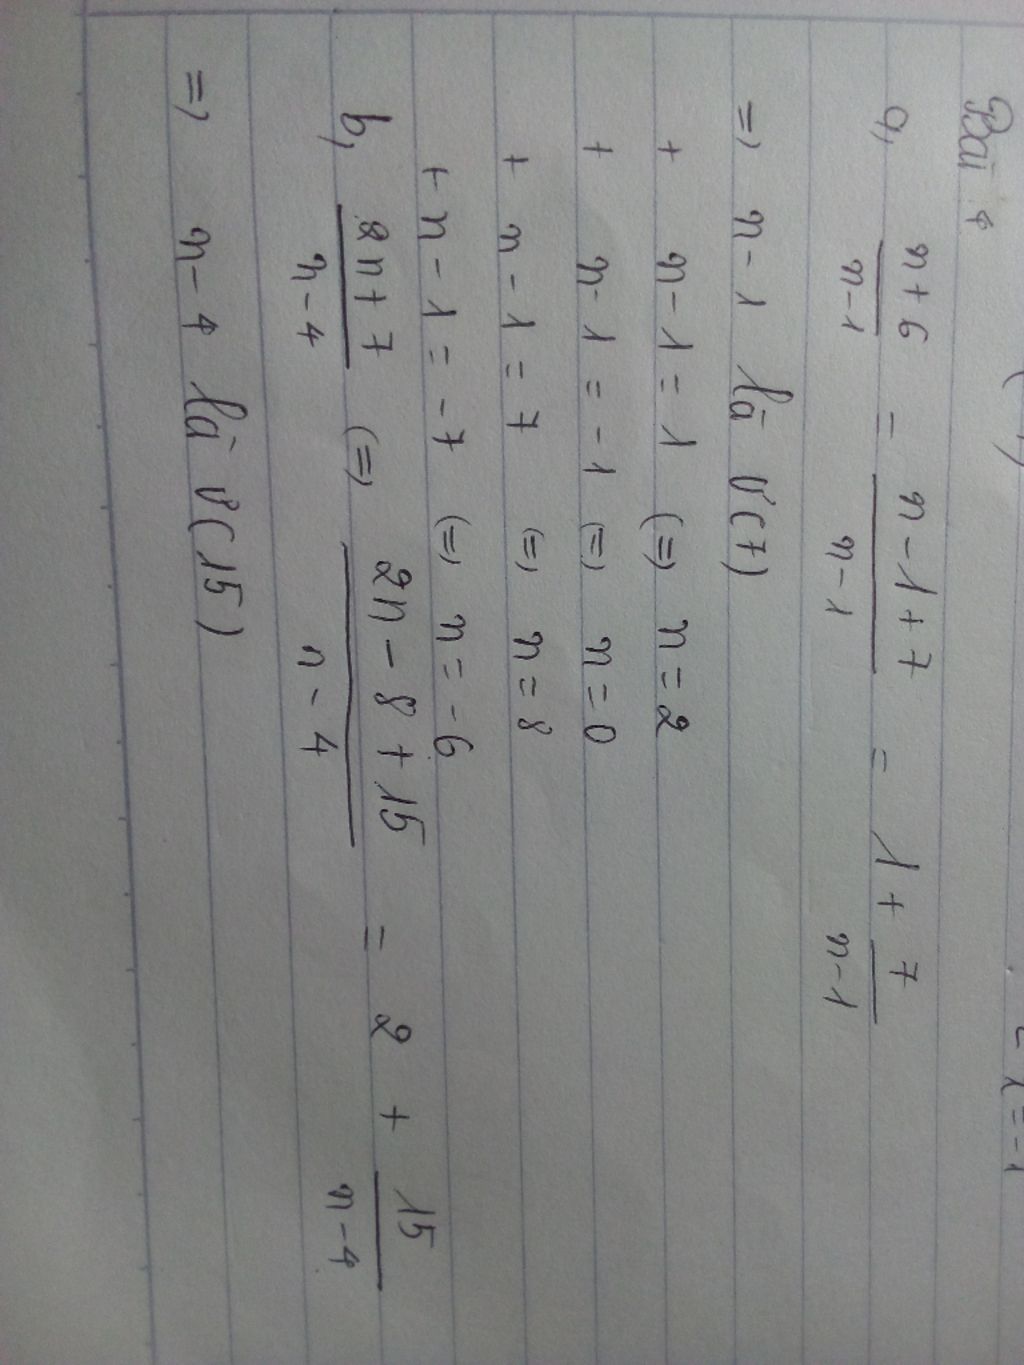 Bài 4
a, n+6/n-1 = n-1+7/n-1 = 1 + 7/n-1
=> n-1 là Ư(7)
+ n-1 = 1 (=) n = 2
+ n-1 = -1 (=) n = 0
+ n-1 = 7 (=) n = 8
+ n-1 = -7 (=) n = -6
b, 2n+7/n-4 (=) 2n-8+15/n-4 = 2 + 15/n-4
=> n-4 là Ư(15)